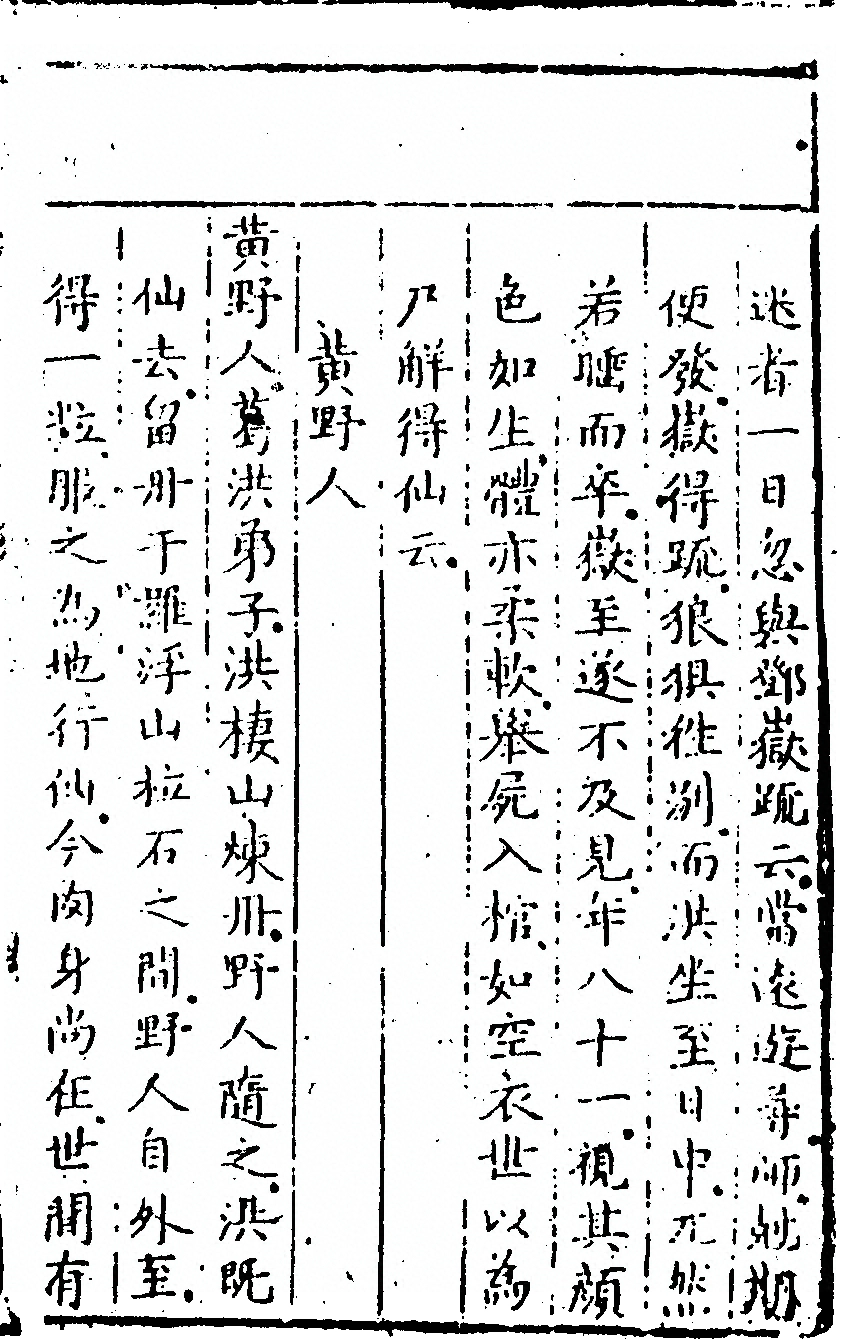 述者一日忽與鄧嶽疏云當遠遊尋師尅期
便發嶽得疏狼狽徃別而洪坐至日中兀然
若睡而卒嶽至遂不及見年八十一視其顔
色如生體亦柔軟舉屍入棺如空衣世以為
尸解得仙云
黄野人
黄野人葛洪弟子洪棲山煉丹野人隨之洪既
仙去留丹于羅浮山柱石之間野人自外至
得一粒服之為地行仙今肉身尚在世間有